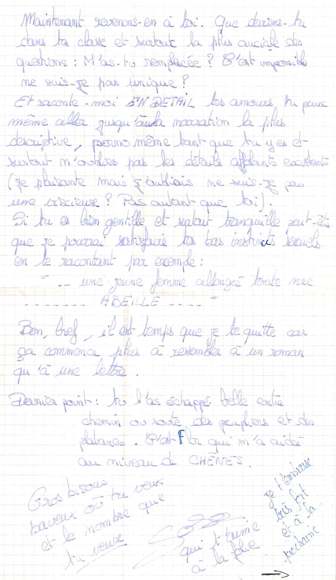 Maintenant revenons-en à toi. Que deviens-tu
dans ta classe et surtout la plus cruciale des
questions : M'as-tu remplacée ? C'est impossible
ne suis-je pas unique ?
Et raconte-moi EN DETAIL tes amours, tu peux
même aller jusqu'à la narration la plus
descriptive, pendant que tu y es et
surtout n'oublies pas les détails
(Je plaisante mais j'oubliais ne suis-je pas
une vicieuse ? Pas autant que toi).
Si tu es bien gentille et surtout tranquille peut-être
que je pourrai satisfaire tes bas instincts
en te racontant par exemple :
" .. une jeune femme allongée toute nue
........ ABEILLE "
Bon, bref, il est temps que je te quitte car
ça commence plus à ressembler à un roman
qu'à une lettre.
Dernier point : tu l'as échappé belle entre
chemin ou route des peupliers et des
platanes. C'est F qui m'a aidée
au niveau de CHÊNES.
Gros bisous
baveux où tu veux
et le nombre que
tu veux
qui t'aime
à la folie
Je t'embrasse
très fort
et à la
prochaine